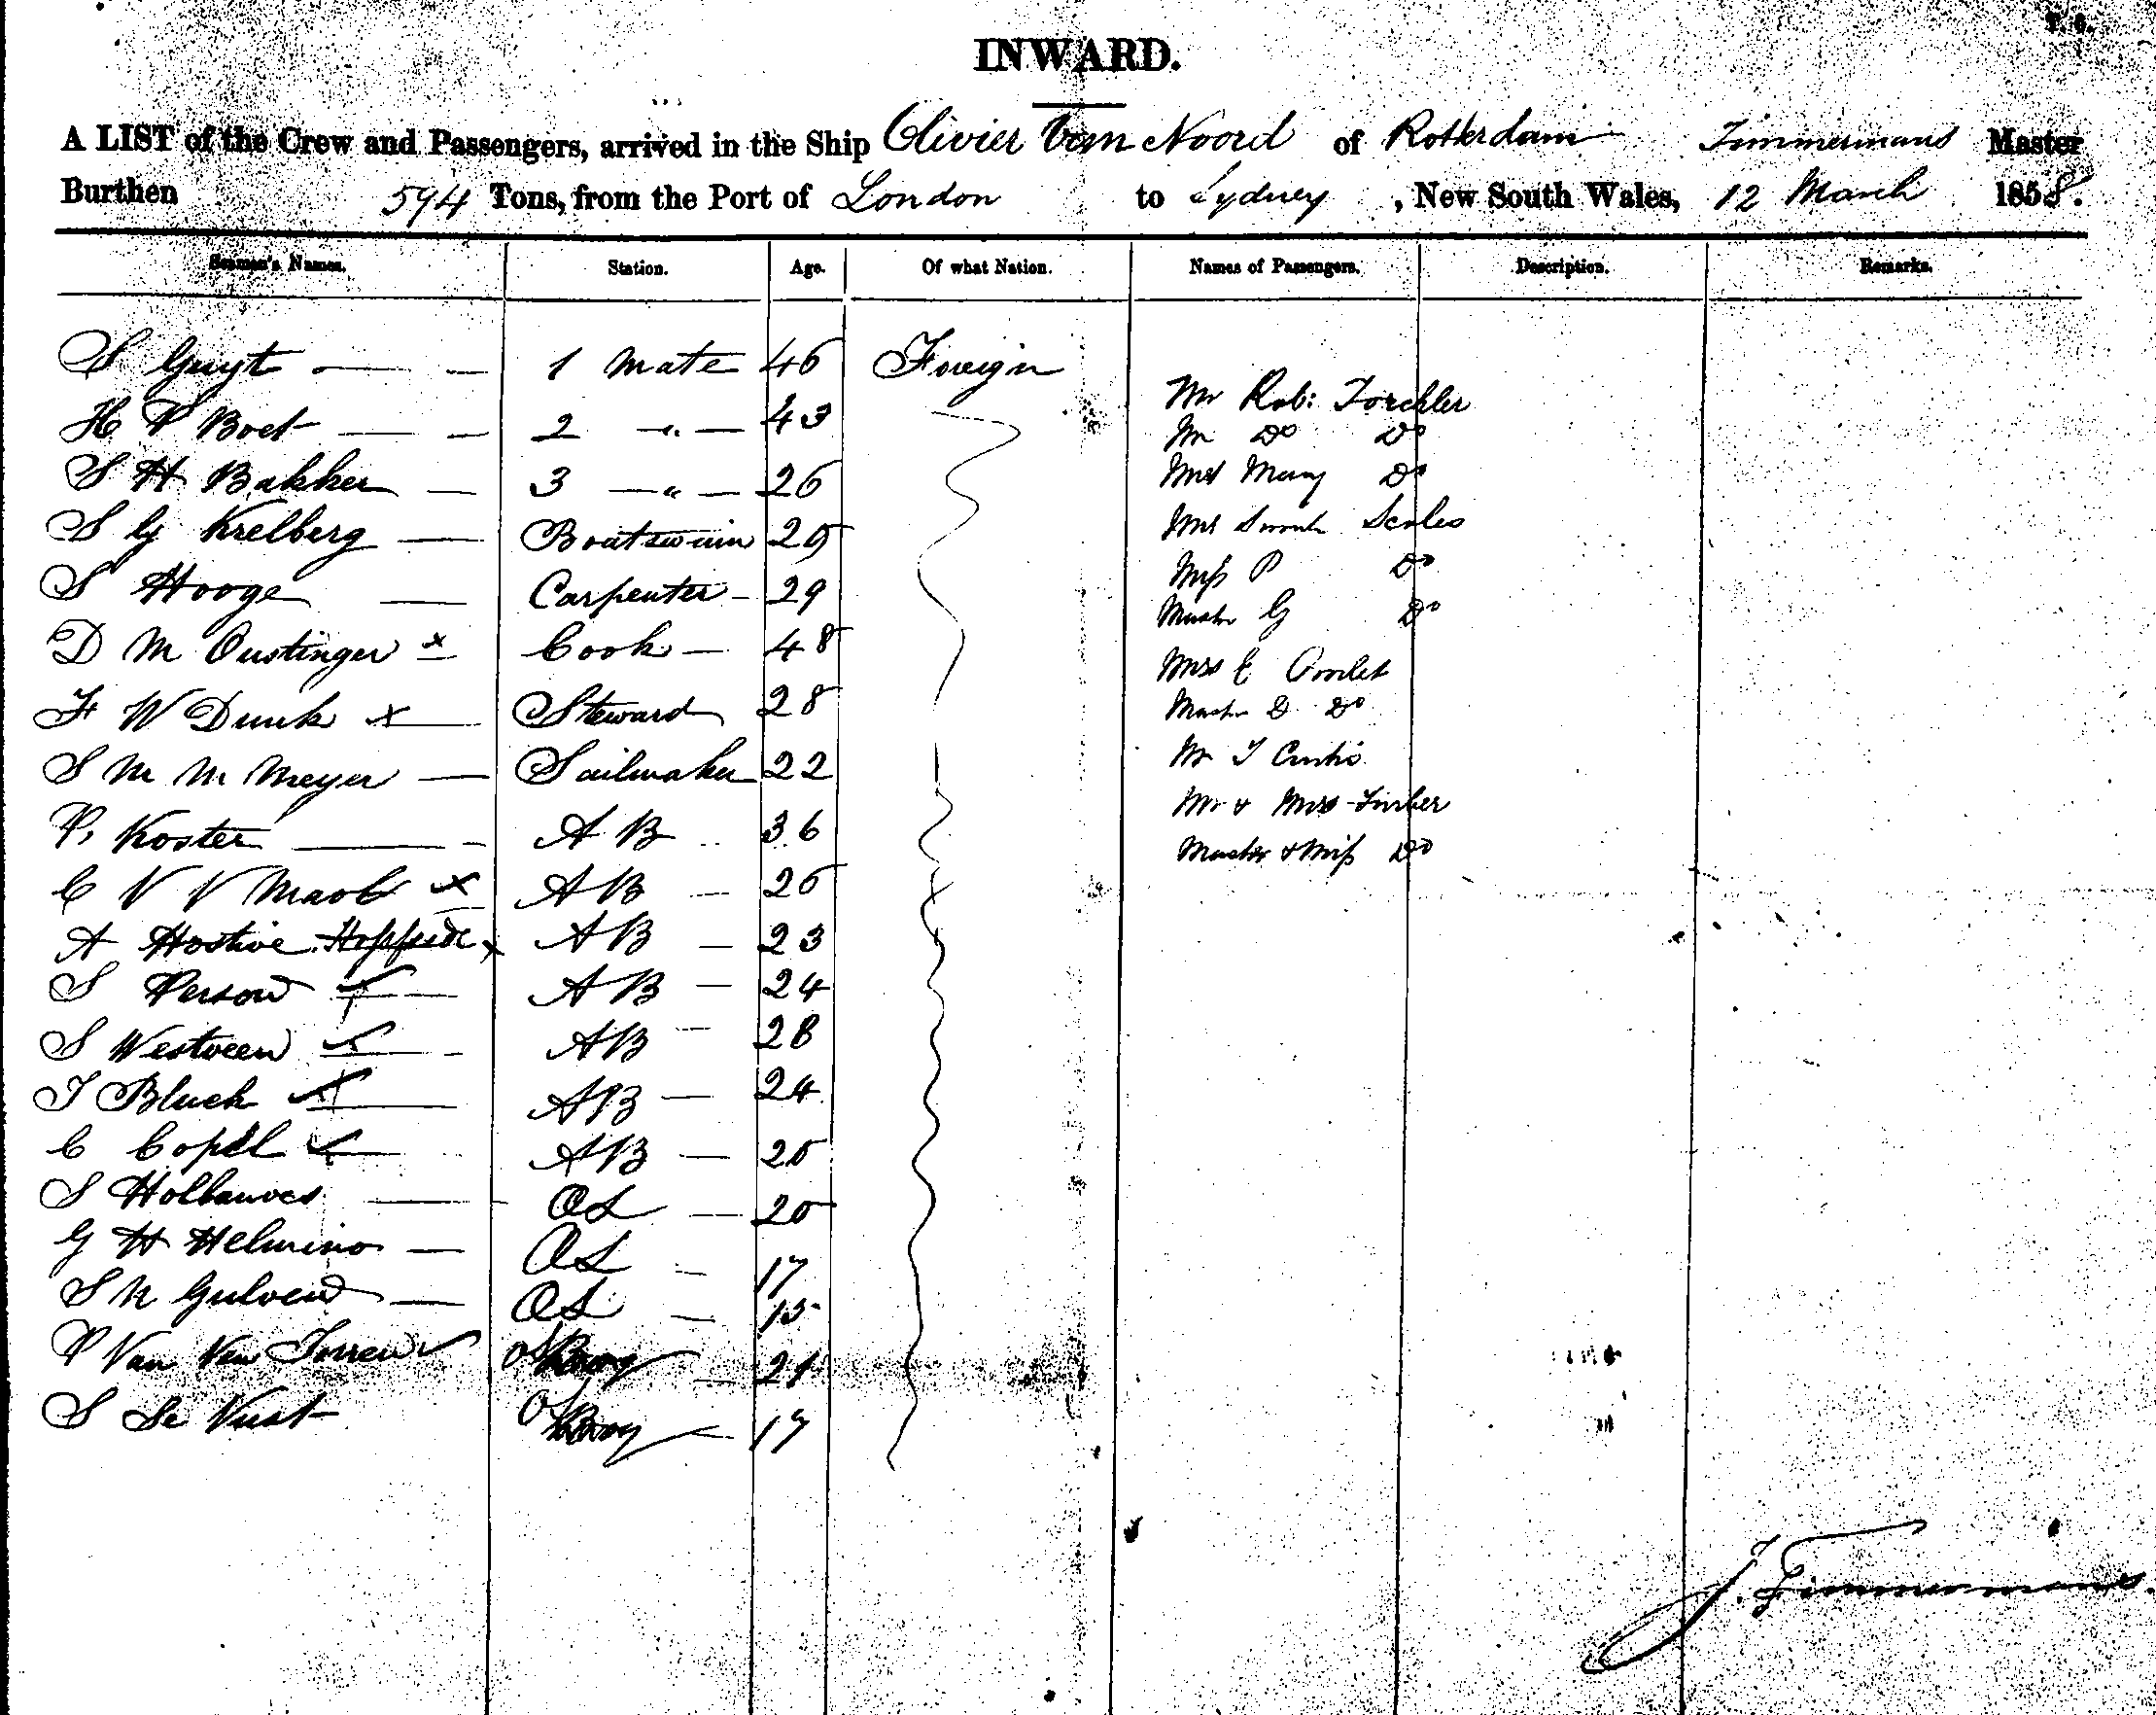 INWARD.
A LIST of the Crew and Passengers, arrived in the Ship Olivier Van Noord of Rotterdam Timmermans Master
Burthen 594 Tons, from the Port of London to Sydney, New South Wales, 12 March 1858.
Seaman's Names. Station. Age. Of what Nation. Names of Passengers. Description. Remarks.
S Guyt 1 Mate 46 Foreign
Mr Rob: Torckler
H P Boet 2 " 43
Mr Do Do
S H Bakker 3 " 26
Mrs Mary Do
S G Krelberg Boatswain 25
Mrs Sarah Scales
S Hooge Carpenter 29
Miss P Do
Master G Do
D M Oustinger x Cook 48
Mrs E
F W Dunk x Steward 28
Master D Do
S M M Meyer Sailmaker 22
Mr T Curtis
P. Koster A B 36
Mr & Mrs Timber
Master & Miss Do
C V V Maob x A B 25
A Hostive Hoffede x A B 23
S Person A B 24
S Westveen A B 28
J Bluck A B 24
C Copel A B 25
S OS 20
G H Helmino OS 17
S N Gulvend OS 15
P Van Van Torren OS Boy 21
S De Vust OS Boy 17
J. Timmermans.